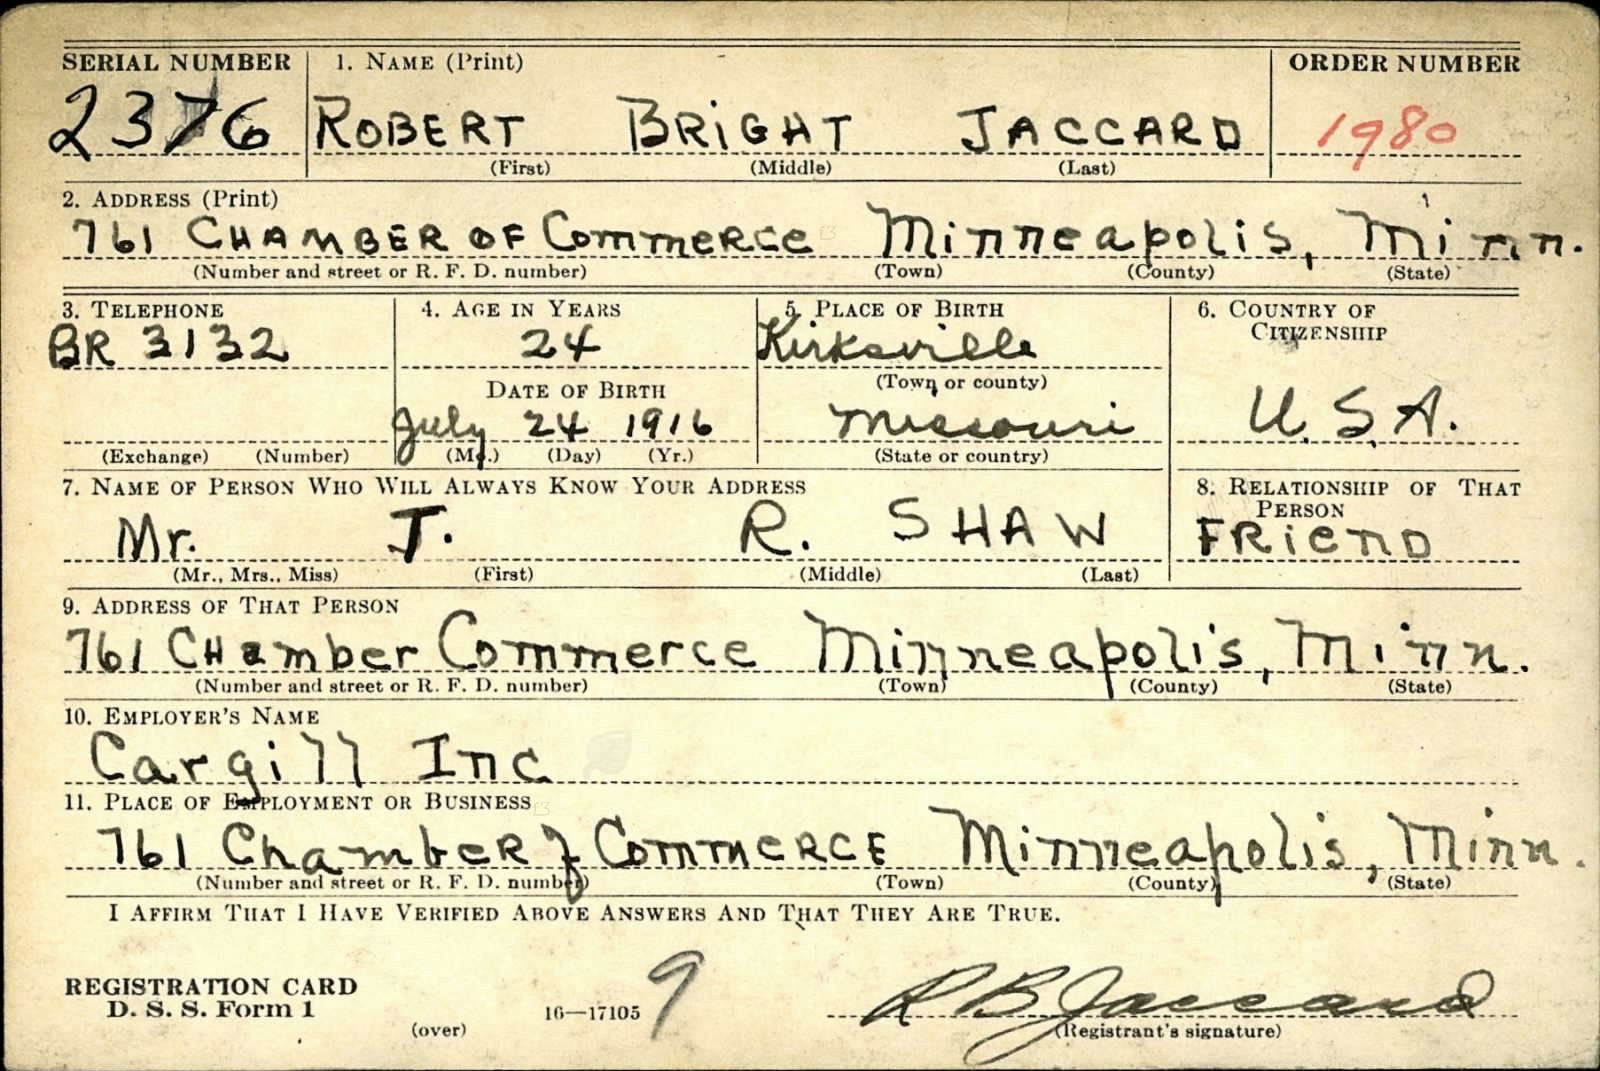 SERIAL NUMBER 1. NAME (Print) ORDER NUMBER
2376 ROBERT BRIGHT JACCARD 1980
(First) (Middle) (Last)
2. ADDRESS (Print)
761 CHAMBER OF COMMERCE Minneapolis, Minn.
(Number and street or R. F. D. number) (Town) (County) (State)
3. TELEPHONE 4. AGE IN YEARS 5. PLACE OF BIRTH 6. COUNTRY OF CITIZENSHIP
BR 3132 24 Kirksville
DATE OF BIRTH (Town or county)
July 24 1916 Missouri U.S.A.
(Exchange) (Number) (Mo.) (Day) (Yr.) (State or country)
7. NAME OF PERSON WHO WILL ALWAYS KNOW YOUR ADDRESS 8. RELATIONSHIP OF THAT PERSON
Mr. J. R. SHAW FRIEND
(Mr., Mrs., Miss) (First) (Middle) (Last)
9. ADDRESS OF THAT PERSON
761 Chamber Commerce Minneapolis, Minn.
(Number and street or R. F. D. number) (Town) (County) (State)
10. EMPLOYER'S NAME
Cargill Inc
11. PLACE OF EMPLOYMENT OR BUSINESS
761 Chamber of Commerce Minneapolis, Minn.
(Number and street or R. F. D. number) (Town) (County) (State)
I AFFIRM THAT I HAVE VERIFIED ABOVE ANSWERS AND THAT THEY ARE TRUE.
REGISTRATION CARD
D. S. S. Form 1 16—17105 9 R B Jaccard
(over) (Registrant's signature)